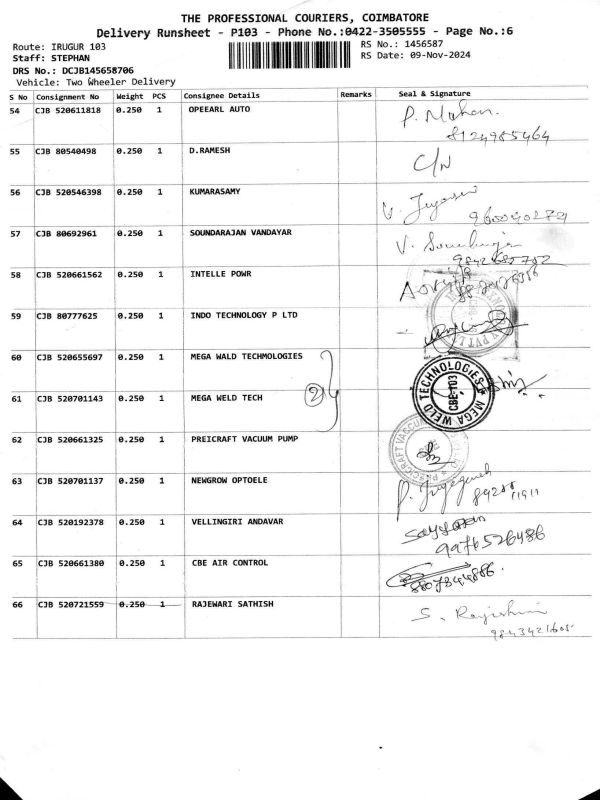 THE PROFESSIONAL COURIERS, COIMBATORE
Delivery Runsheet - P103 - Phone No.:0422-3505555 - Page No.:6
Route: IRUGUR 103
RS No.: 1456587
Staff: STEPHAN
RS Date: 09-Nov-2024
DRS No.: DCJB145658706
Vehicle: Two Wheeler Delivery
S No Consignment No Weight PCS Consignee Details Remarks Seal & Signature
54 CJB 520611818 0.250 1 OPEEARL AUTO P. Mohan.
8124985464
55 CJB 80540498 0.250 1 D.RAMESH C/N
56 CJB 520546398 0.250 1 KUMARASAMY V.
57 CJB 80692961 0.250 1 SOUNDARAJAN VANDAYAR V.
58 CJB 520661562 0.250 1 INTELLE POWR
59 CJB 80777625 0.250 1 INDO TECHNOLOGY P LTD
60 CJB 520655697 0.250 1 MEGA WALD TECHMOLOGIES
61 CJB 520701143 0.250 1 MEGA WELD TECH 2 MEGA WELD TECHNOLOGIES CBE-103
62 CJB 520661325 0.250 1 PREICRAFT VACUUM PUMP
63 CJB 520701137 0.250 1 NEWGROW OPTOELE P.
64 CJB 520192378 0.250 1 VELLINGIRI ANDAVAR
9976526486
65 CJB 520661380 0.250 1 CBE AIR CONTROL
8807844886.
66 CJB 520721559 0.250 1 RAJEWARI SATHISH S.